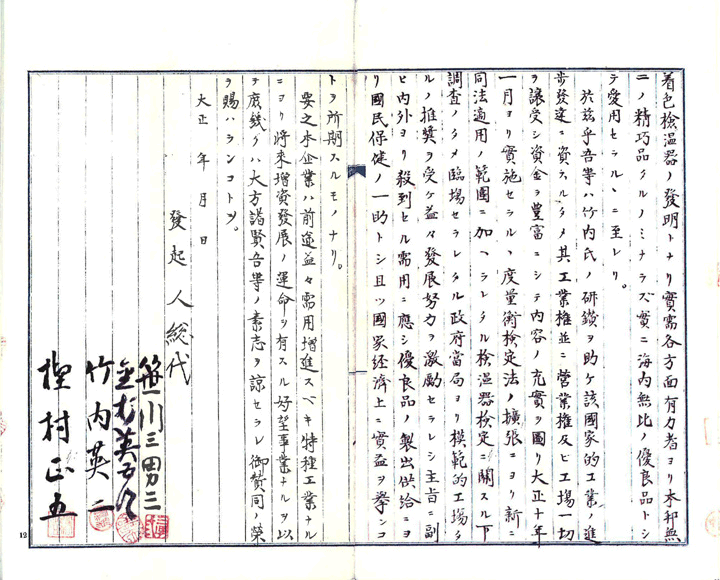 着色檢温器ノ發明トナリ實需各方面有力者ヨリ本邦無
二ノ精巧品タルノミナラズ實ニ海内無比ノ優良品トシ
テ愛用セラルヽニ至レリ。
於玆乎吾等ハ竹内氏ノ研鑚ヲ助ケ該國家的工業ノ進
步發達ニ資スルタメ其工業權並ニ營業權及ビ工場一切
ヲ讓受シ資金ヲ豐富ニシテ内容ノ充實ヲ圖リ大正十年
一月ヨリ實施セラルヽ度量衡檢定法ノ擴張ニヨリ新ニ
同法適用ノ範圍ニ加ヘラレタル檢温器檢定ニ關スル下
調査ノタメ臨場セラレタル政府當局ヨリ模範的工場タ
ルノ推奬ヲ受ケ益々發展努力ヲ激勵セラレシ主旨ニ副
ヒ内外ヨリ殺到セル需用ニ應シ優良品ノ製出供給ニヨ
リ國民保健ノ一助トシ且ツ國家経濟上ニ實益ヲ擧ンコ
トヲ所期スルモノナリ。
要之本企業ハ前途益々需用增進スベキ特種工業ナル
ニヨリ將來增資發展ノ運命ヲ有スル好望事業ナルヲ以
テ庶幾クハ大方諸賢吾等ノ素志ヲ諒セラレ御賛同ノ榮
ヲ賜ハランコトヲ。
大正 年 月 日
發起人総代
笹川三男三
竹内英二
樫村正五
12